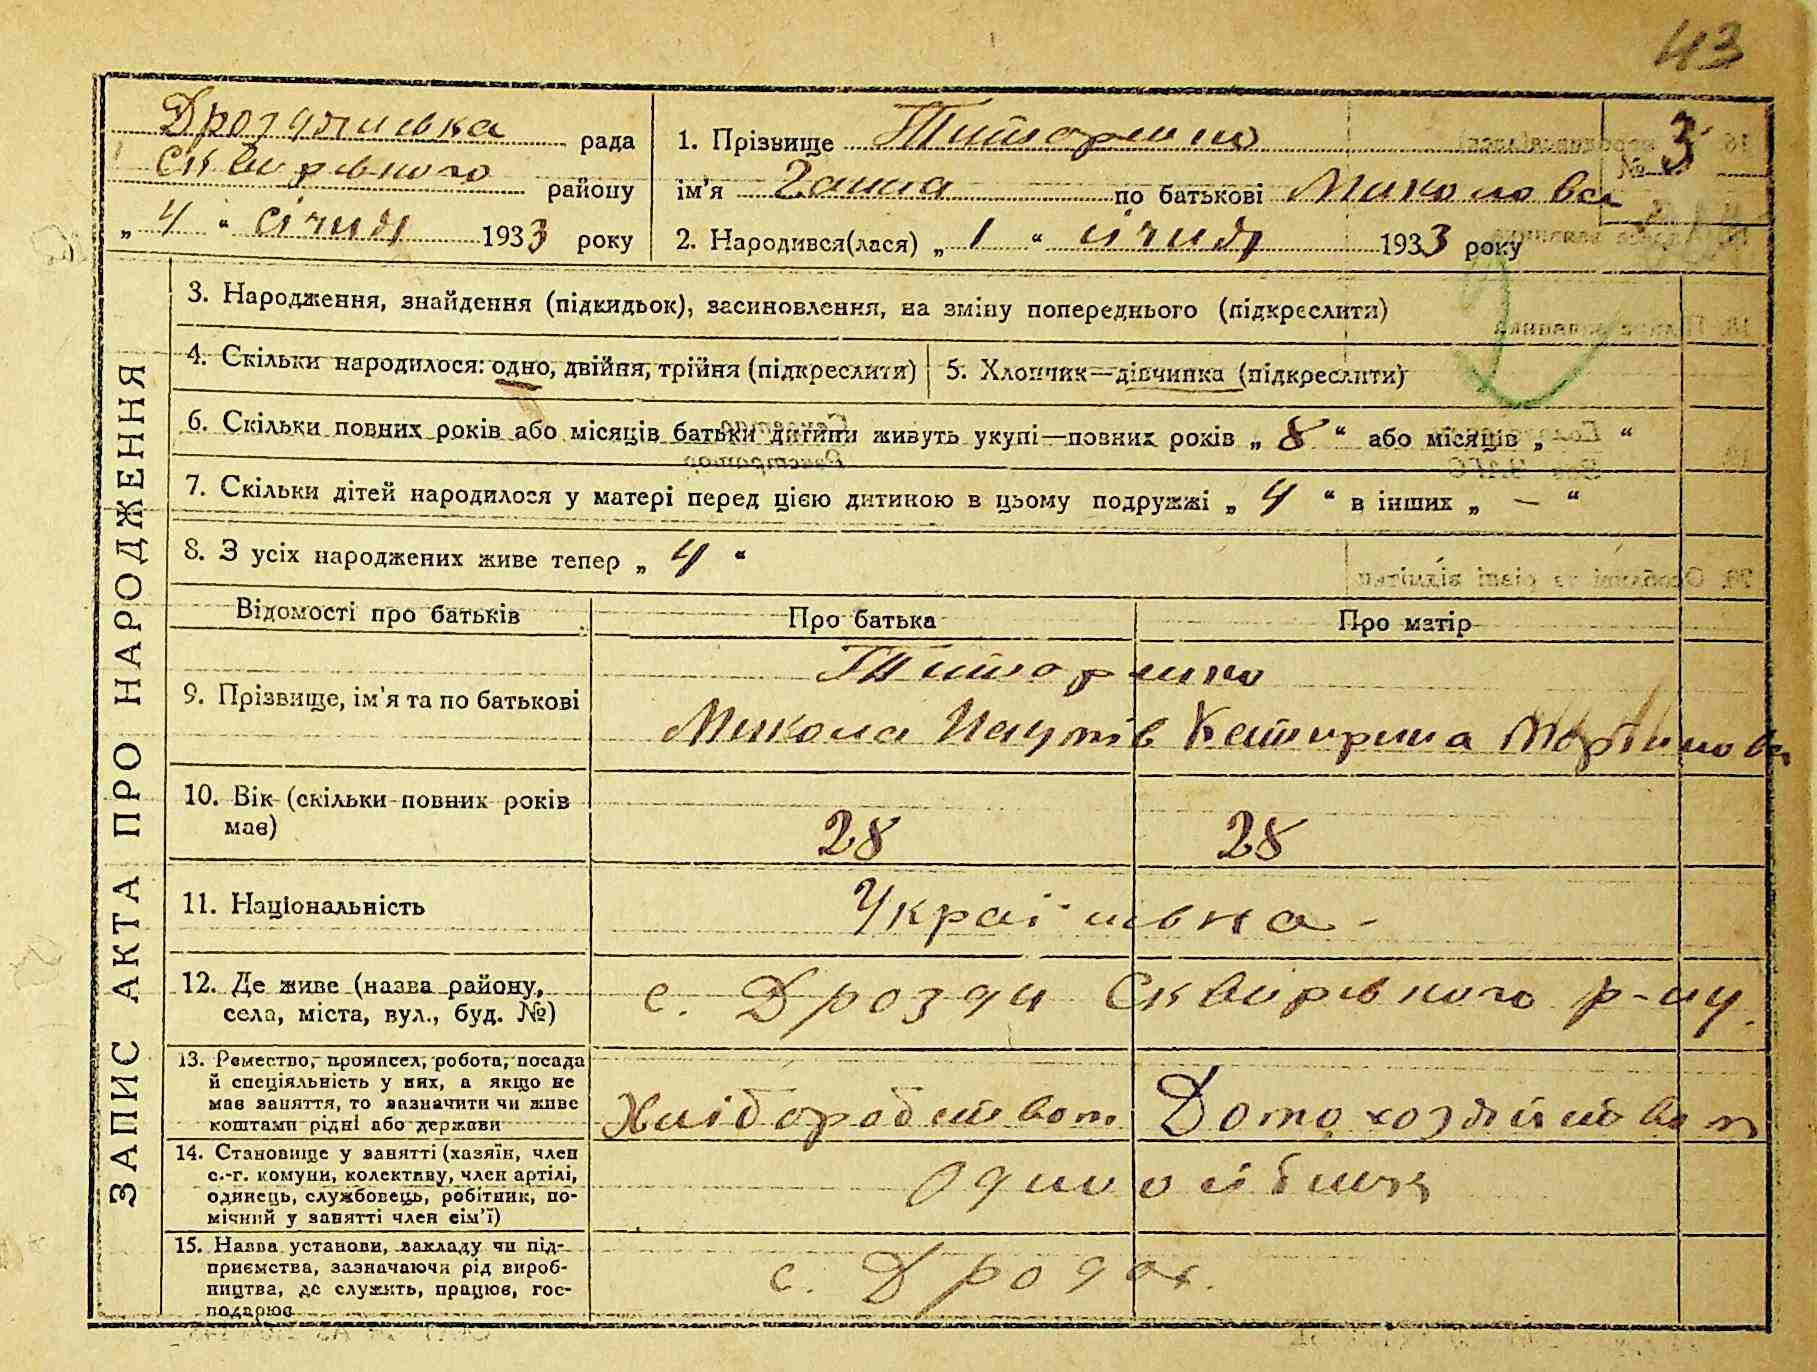 43
Дроздинська рада
Сквирсьного району
„ 4 “ січня 1933 року
1. Прізвище Титаренко
№ 3
ім’я Ганна по батькові Миколовна
2. Народився(лася) „ 1 “ січня 1933 року
ЗАПИС АКТА ПРО НАРОДЖЕННЯ
3. Народження, знайдення (підкидьок), засиновлення, на зміну попереднього (підкреслити)
2
4. Скільки народилося: одно, двійня, трійня (підкреслити)
5. Хлопчик—дівчинка (підкреслити)
6. Скільки повних років або місяців батьки дитини живуть укупі—повних років „ 8 “ або місяців „ “
7. Скільки дітей народилося у матері перед цією дитиною в цьому подружжі „ 4 “ в інших „ — “
8. З усіх народжених живе тепер „ 4 “
Відомості про батьків
Про батька
Про матір
9. Прізвище, ім’я та по батькові
Микола Наумів
Катирина Мартинова
10. Вік (скільки повних років
має)
28
28
11. Національність
Українська -
12. Де живе (назва району,
села, міста, вул., буд. №)
с. Дрозди Сквирського р-ну.
13. Ремество, промисел, робота, посада
й спеціяльність у них, а якщо не
має заняття, то зазначити чи живе
коштами рідні або держави
Хліборобством
Домохозяйством
14. Становище у занятті (хазяїн, член
с.-г. комуни, колективу, член артілі,
одинець, службовець, робітник, по-
мічний у занятті член сім’ї)
Одноосібния
15. Назва установи, закладу чи під-
приємства, зазначаючи рід вироб-
ництва, де служить, працює, гос-
подарює
с. Дроздах.